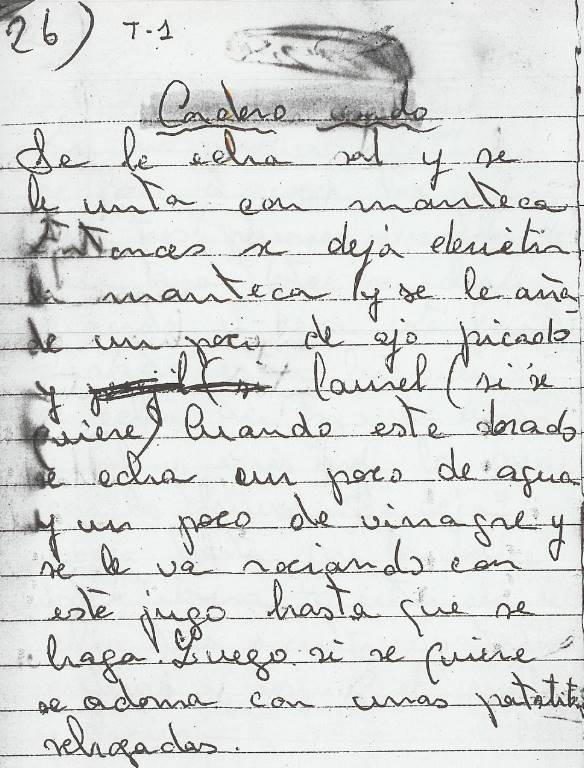 26) T-1
Cordero asado
Se le echa sal y se
le unta con manteca
Entonces se deja derretir
la manteca y se le aña
de un poco de ajo picado
y laurel (si se
quiere) Cuando este dorado
se echa un poco de agua
y un poco de vinagre y
se le va rociando con
este jugo hasta que se
haga. Luego si se quiere
se adorna con unas patatitas
rehogadas.